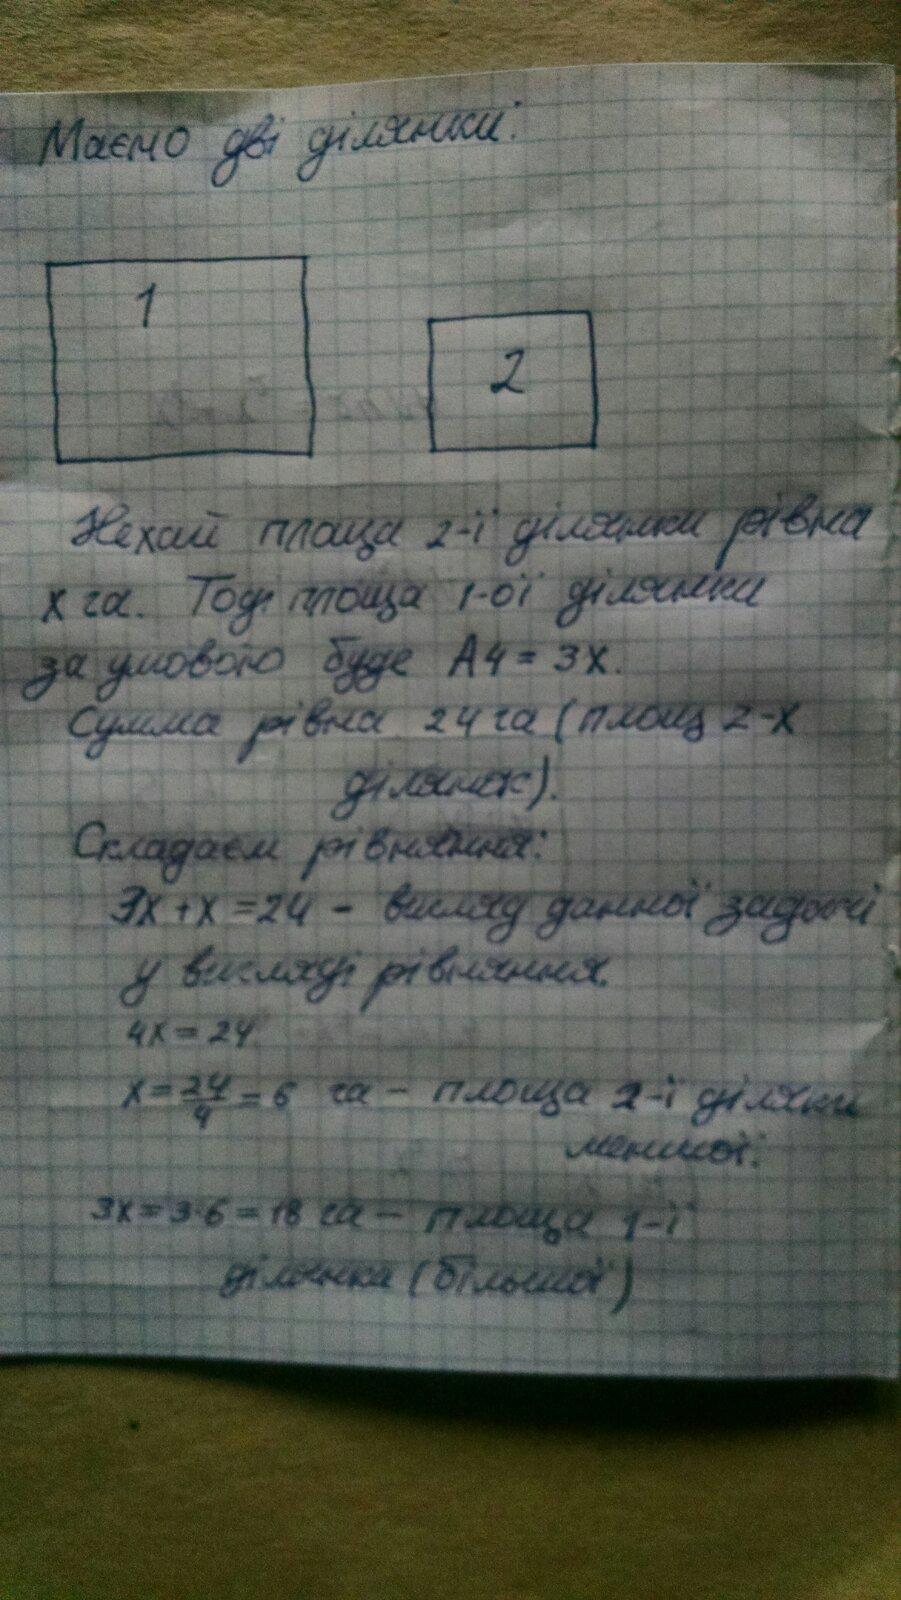 Маємо дві ділянки.
1
2
Нехай площа 2-ї ділянки рівна
х га. Тоді площа 1-ої ділянки
за умовою буде А4 = 3х.
Сумма рівна 24 га (площ 2-х
ділянок).
Складаєм рівняння:
3х + х = 24 - вигляд данної задачі
у вигляді рівняння.
4х = 24
х = 24/4 = 6 га - площа 2-ї ділянки
меншої.
3х = 3·6 = 18 га - площа 1-ї
ділянки (більшої)